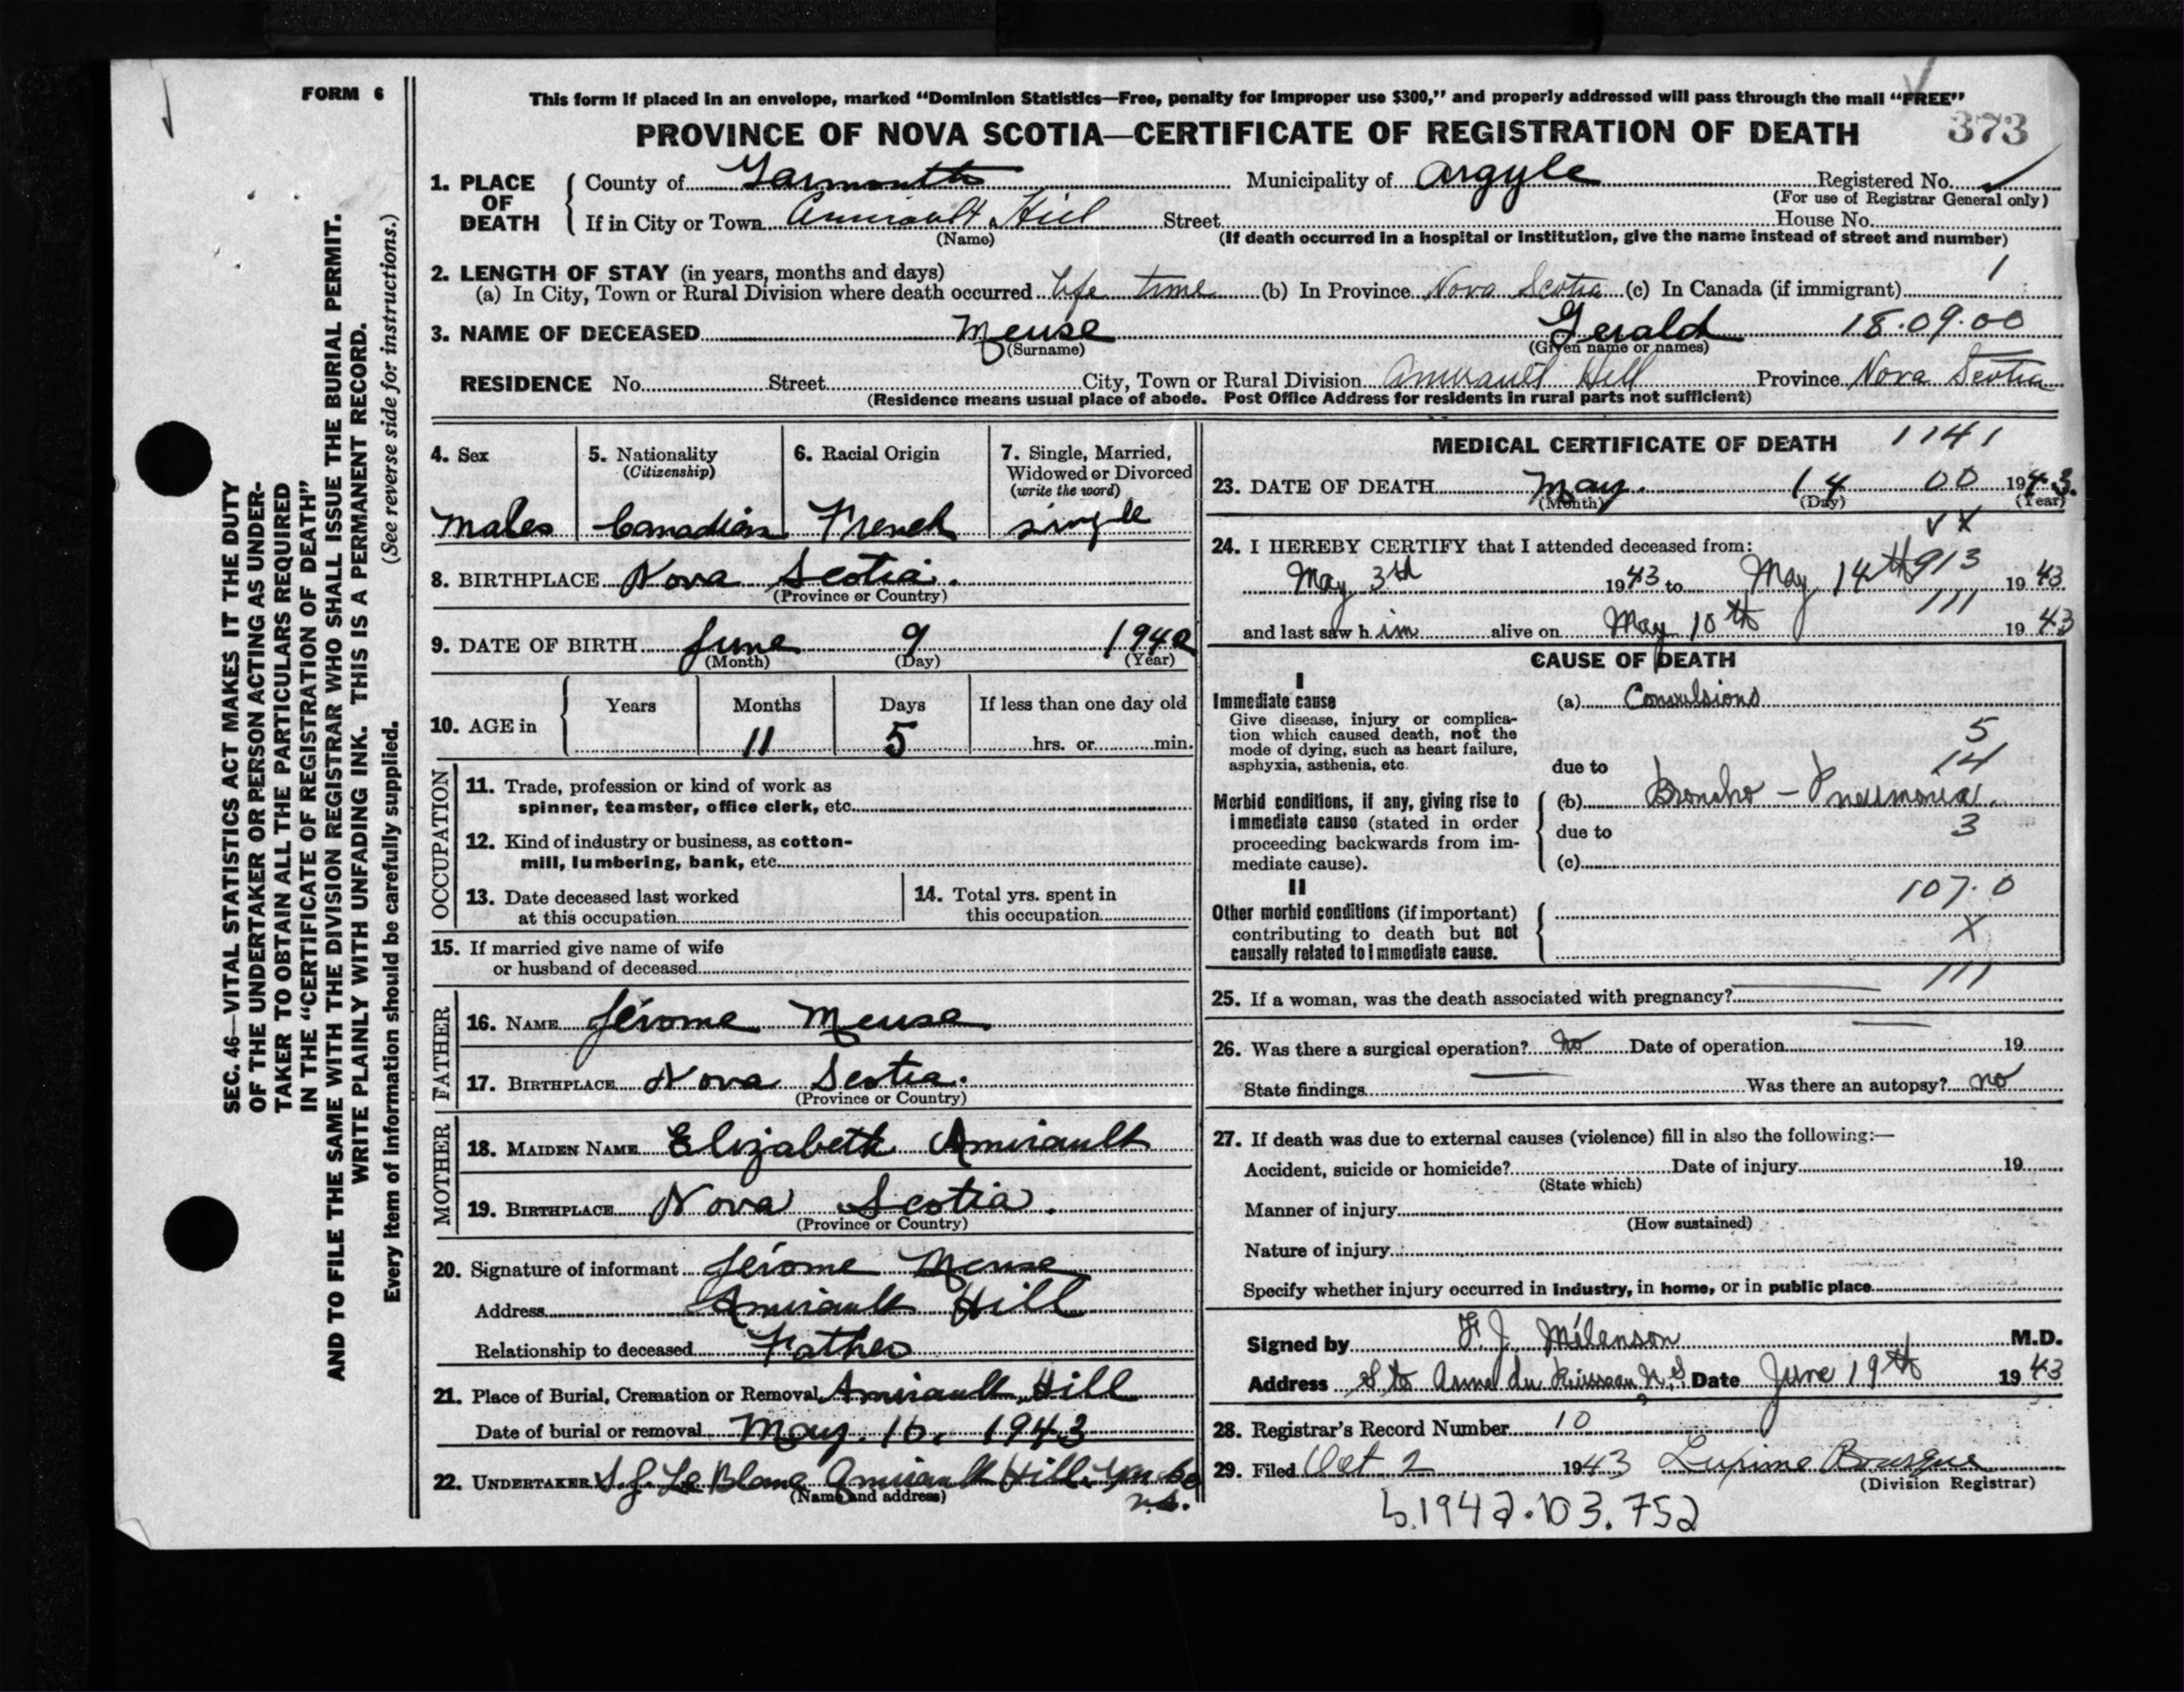 FORM 6
This form if placed in an envelope, marked "Dominion Statistics—Free, penalty for improper use $300," and properly addressed will pass through the mail "FREE"
PROVINCE OF NOVA SCOTIA—CERTIFICATE OF REGISTRATION OF DEATH 373
SEC. 46—VITAL STATISTICS ACT MAKES IT THE DUTY
OF THE UNDERTAKER OR PERSON ACTING AS UNDER-
TAKER TO OBTAIN ALL THE PARTICULARS REQUIRED
IN THE "CERTIFICATE OF REGISTRATION OF DEATH"
AND TO FILE THE SAME WITH THE DIVISION REGISTRAR WHO SHALL ISSUE THE BURIAL PERMIT.
WRITE PLAINLY WITH UNFADING INK. THIS IS A PERMANENT RECORD.
Every item of information should be carefully supplied. (See reverse side for instructions.)
1. PLACE OF DEATH
County of Yarmouth Municipality of Argyle Registered No.
(For use of Registrar General only)
If in City or Town Amirault Hill Street House No.
(Name) (If death occurred in a hospital or institution, give the name instead of street and number)
2. LENGTH OF STAY (in years, months and days) 1
(a) In City, Town or Rural Division where death occurred life time (b) In Province Nova Scotia (c) In Canada (if immigrant)
3. NAME OF DECEASED Meuse Gerald 18.09.00
(Surname) (Given name or names)
RESIDENCE No. Street City, Town or Rural Division Amirault Hill Province Nova Scotia
(Residence means usual place of abode. Post Office Address for residents in rural parts not sufficient)
4. Sex 5. Nationality (Citizenship) 6. Racial Origin 7. Single, Married, Widowed or Divorced (write the word)
Males Canadian French single
8. BIRTHPLACE Nova Scotia.
(Province or Country)
9. DATE OF BIRTH June 9 1942
(Month) (Day) (Year)
10. AGE in Years Months Days If less than one day old
11 5 hrs. or min.
OCCUPATION
11. Trade, profession or kind of work as
spinner, teamster, office clerk, etc.
12. Kind of industry or business, as cotton-
mill, lumbering, bank, etc.
13. Date deceased last worked
at this occupation
14. Total yrs. spent in
this occupation
15. If married give name of wife
or husband of deceased
FATHER
16. NAME Jérome Meuse
17. BIRTHPLACE Nova Scotia.
(Province or Country)
MOTHER
18. MAIDEN NAME Elizabeth Amirault
19. BIRTHPLACE Nova Scotia.
(Province or Country)
20. Signature of informant Jérome Meuse
Address Amirault Hill
Relationship to deceased Father
21. Place of Burial, Cremation or Removal Amirault Hill
Date of burial or removal May. 16, 1943
22. UNDERTAKER S.J. Le Blanc Amirault Hill Yar Co
(Name and address) N.S.
MEDICAL CERTIFICATE OF DEATH 1141
23. DATE OF DEATH May. 14 00 1943.
(Month) (Day) (Year)
24. I HEREBY CERTIFY that I attended deceased from:
May 3rd 1943 to May 14th 913 1943
111
and last saw him alive on May 10th 1943
CAUSE OF DEATH
I
Immediate cause (a) Convulsions
Give disease, injury or complica-
tion which caused death, not the
mode of dying, such as heart failure,
asphyxia, asthenia, etc.
5
14
due to
Morbid conditions, if any, giving rise to
immediate cause (stated in order
proceeding backwards from im-
mediate cause).
(b) Broncho - Pneumonia.
due to 3
(c)
II
107.0
Other morbid conditions (if important)
contributing to death but not
causally related to immediate cause.
X
111
25. If a woman, was the death associated with pregnancy?
26. Was there a surgical operation? no Date of operation 19
State findings Was there an autopsy? no
27. If death was due to external causes (violence) fill in also the following:—
Accident, suicide or homicide? Date of injury 19
(State which)
Manner of injury
(How sustained)
Nature of injury
Specify whether injury occurred in industry, in home, or in public place
Signed by F. J. Mélanson M.D.
Address Ste Anne du Ruisseau N.S. Date June 19th 1943
28. Registrar's Record Number 10
29. Filed Oct 2 1943
(Division Registrar)
b.1942.103.752